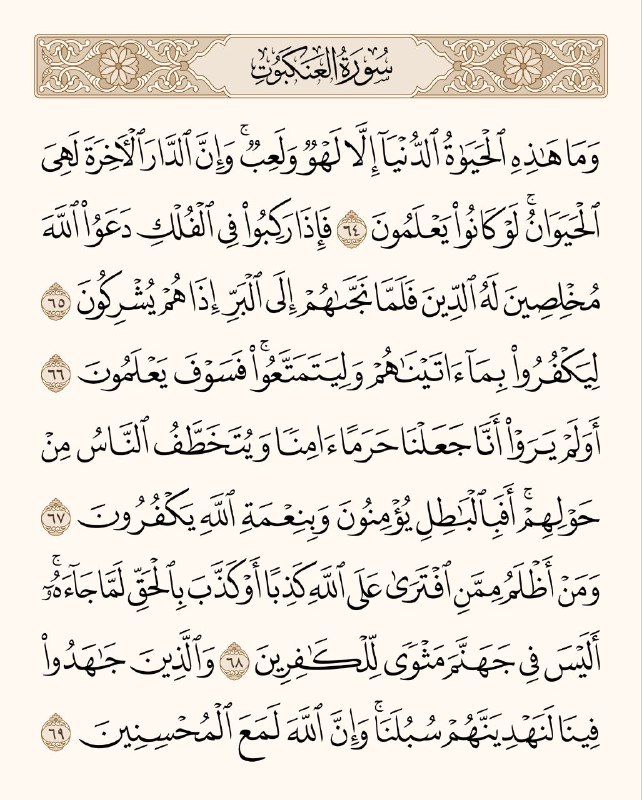 سُورَةُ العَنكَبُوتِ
وَمَا هَٰذِهِ ٱلْحَيَوٰةُ ٱلدُّنْيَآ إِلَّا لَهْوٌ وَلَعِبٌ ۚ وَإِنَّ ٱلدَّارَ ٱلْءَاخِرَةَ لَهِىَ
ٱلْحَيَوَانُ ۚ لَوْ كَانُوا۟ يَعْلَمُونَ ٦٤ فَإِذَا رَكِبُوا۟ فِى ٱلْفُلْكِ دَعَوُا۟ ٱللَّهَ
مُخْلِصِينَ لَهُ ٱلدِّينَ فَلَمَّا نَجَّىٰهُمْ إِلَى ٱلْبَرِّ إِذَا هُمْ يُشْرِكُونَ ٦٥
لِيَكْفُرُوا۟ بِمَآ ءَاتَيْنَٰهُمْ وَلِيَتَمَتَّعُوا۟ ۚ فَسَوْفَ يَعْلَمُونَ ٦٦
أَوَلَمْ يَرَوْا۟ أَنَّا جَعَلْنَا حَرَمًا ءَامِنًا وَيُتَخَطَّفُ ٱلنَّاسُ مِنْ
حَوْلِهِمْ ۚ أَفَبِٱلْبَٰطِلِ يُؤْمِنُونَ وَبِنِعْمَةِ ٱللَّهِ يَكْفُرُونَ ٦٧
وَمَنْ أَظْلَمُ مِمَّنِ ٱفْتَرَىٰ عَلَى ٱللَّهِ كَذِبًا أَوْ كَذَّبَ بِٱلْحَقِّ لَمَّا جَآءَهُۥٓ ۚ
أَلَيْسَ فِى جَهَنَّمَ مَثْوًى لِّلْكَٰفِرِينَ ٦٨ وَٱلَّذِينَ جَٰهَدُوا۟
فِينَا لَنَهْدِيَنَّهُمْ سُبُلَنَا ۚ وَإِنَّ ٱللَّهَ لَمَعَ ٱلْمُحْسِنِينَ ٦٩